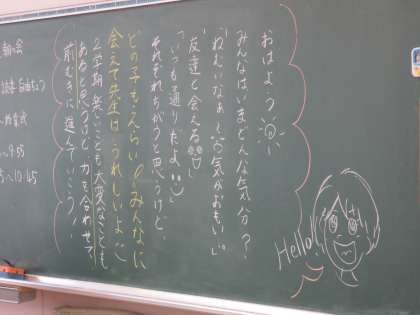 おはよう
みんなはいまどんな気分?
「ねむいなぁ…」「気がおもい」
「友達と会える」
「いつも通りだよ」
それぞれちがうと思うけど、
どの子もえらい みんなに
会えて先生は、うれしいよ
2学期、楽しいことも大変なことも
あると思うけど力を合わせて
前むきに進んでいこう!
朝の会
Hello!